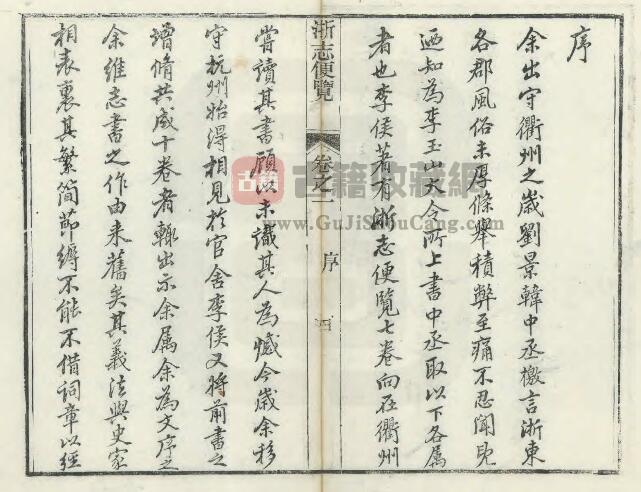 序
余出守衢州之歲劉景韓中丞檄言浙東
各郡風俗未厚條舉積弊至痛不忍聞見
迺知為李玉山大令所上書中丞取以下各属
者也李侯著有浙志便覽七卷向在衢州
浙志便覽
卷之一
序
四
嘗讀其書顧以未識其人為憾今歲余移
守杭州始得相見於官舍李侯又將前書之
增脩共成十卷者輙出示余属余為文序之
余維志書之作由来舊矣其義法與史家
相表裏其繁簡節縟不能不借詞章以經
古籍
古籍收藏網
www.GuJiShouCang.com